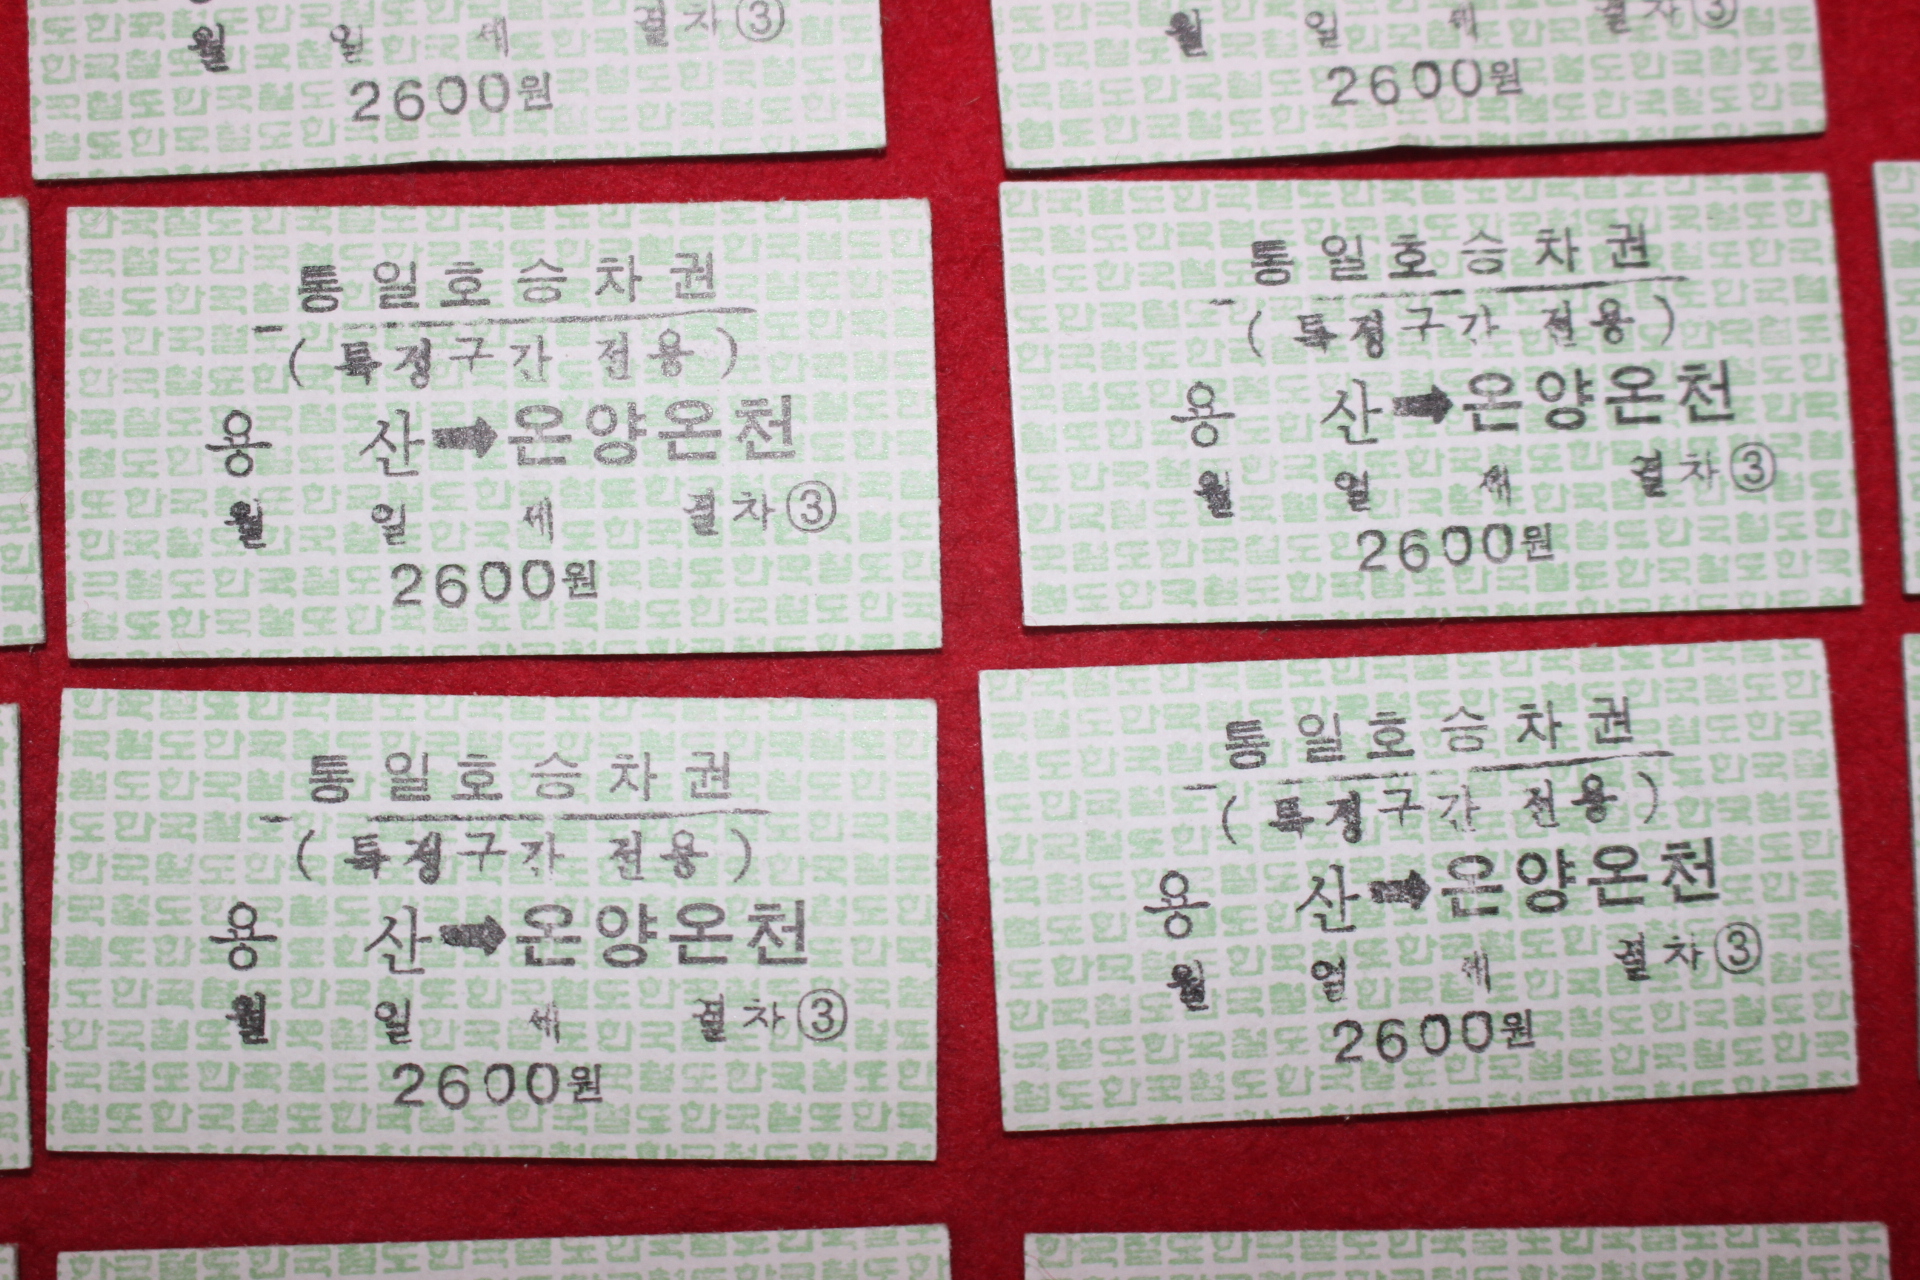 월 일 세 결차③
2600원
월 일 세 결차③
2600원
통일호승차권
(특정구간 전용)
용 산➡온양온천
월 일 세 결차③
2600원
통일호승차권
(특정구간 전용)
용 산➡온양온천
월 일 세 결차③
2600원
통일호승차권
(특정구간 전용)
용 산➡온양온천
월 일 세 결차③
2600원
통일호승차권
(특정구간 전용)
용 산➡온양온천
월 일 세 결차③
2600원